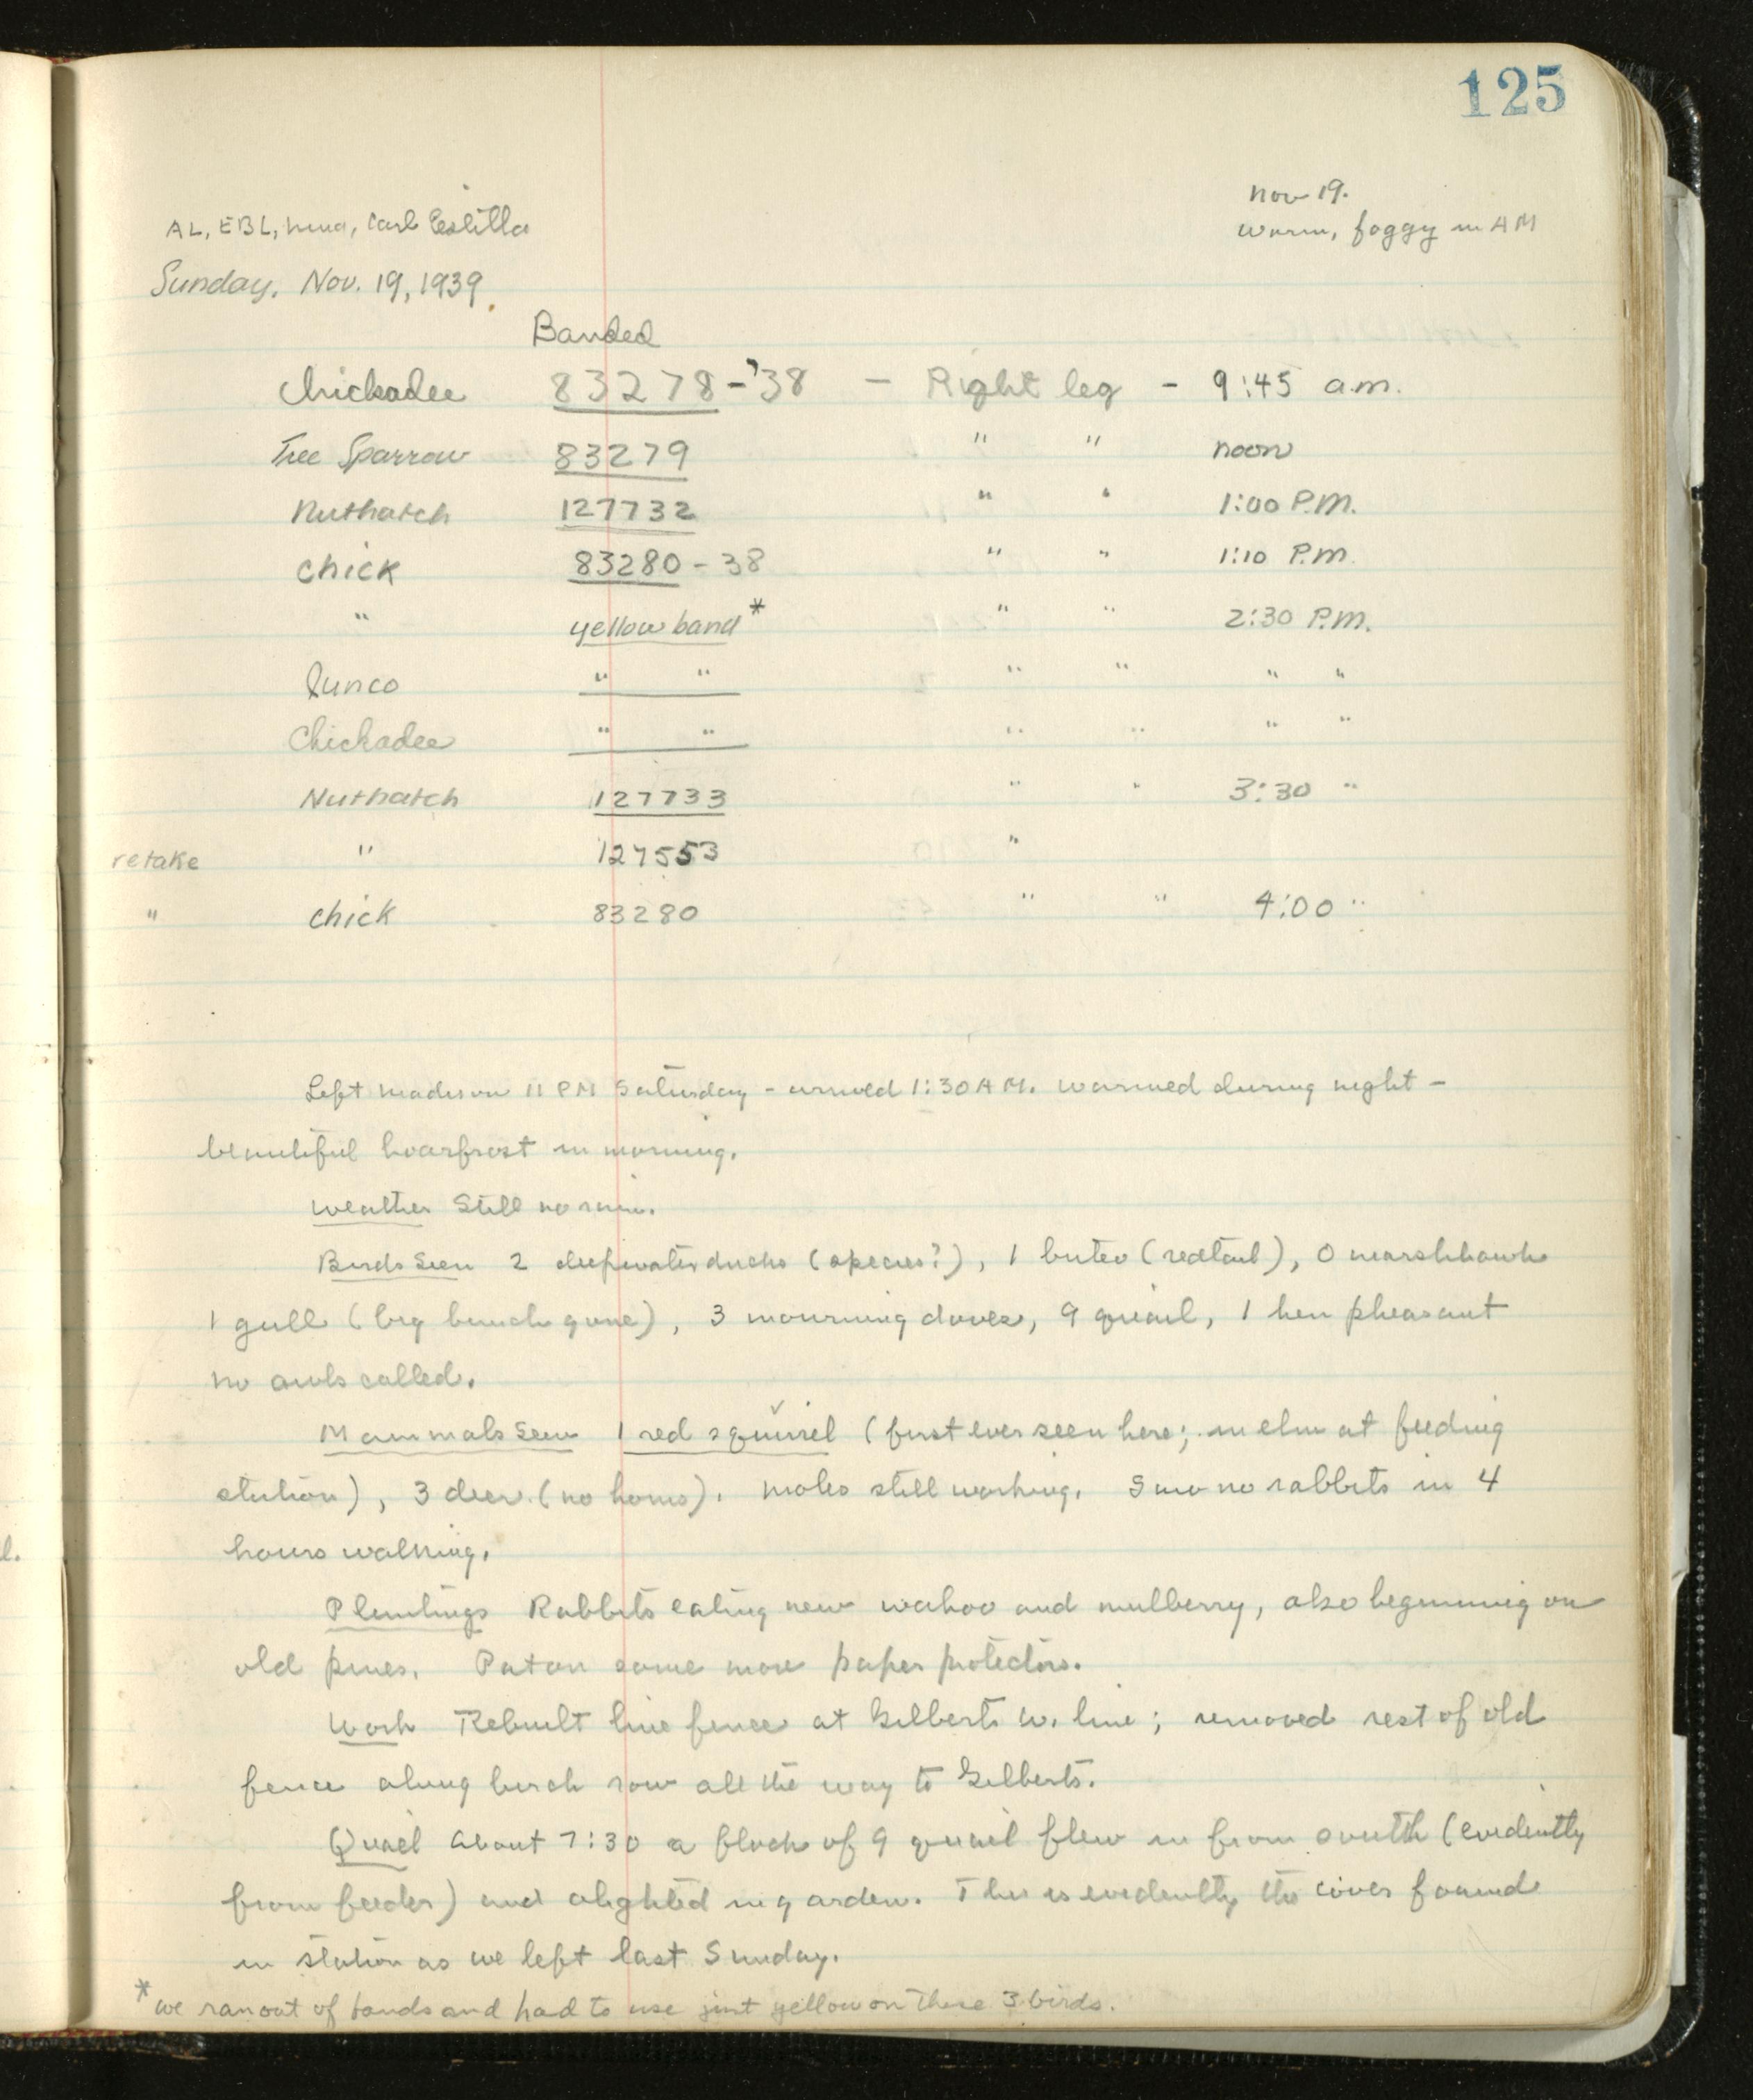 125
Nov 19.
Warm, foggy in AM
AL, EBL, Nina, Carl Estella
Sunday, Nov. 19, 1939.
Banded
Chickadee 83278-'38 - Right leg - 9:45 a.m.
Tree Sparrow 83279 " " noon
Nuthatch 127732 " " 1:00 P.M.
Chick 83280-38 " " 1:10 P.M.
" yellow band* " " 2:30 P.M.
Junco " " " " " "
Chickadee " " " " " "
Nuthatch 127733 " " 3:30 "
retake " 127553 "
" Chick 83280 " " 4:00 "
Left Madison 11 PM Saturday - arrived 1:30 AM. Warmed during night -
beautiful hoarfrost in morning.
Weather Still no rain.
Birds Seen 2 deepwater ducks (species?), 1 buteo (redtail), 0 marshhawk
1 gull (big bunch gone), 3 mourning doves, 9 quail, 1 hen pheasant
no owls called.
Mammals Seen 1 red squirrel (first ever seen here; in elm at feeding
station), 3 deer (no horns). Moles still working. Saw no rabbits in 4
hours walking.
Plantings Rabbits eating new wahoo and mulberry, also beginning on
old pines. Put on some more paper protectors.
Work Rebuilt line fence at Gilberts W. line; removed rest of old
fence along birch row all the way to Gilberts.
Quail About 7:30 a flock of 9 quail flew in from south (evidently
from feeder) and alighted in garden. This is evidently the covey found
in station as we left last Sunday.
* We ran out of bands and had to use just yellow on these 3 birds.